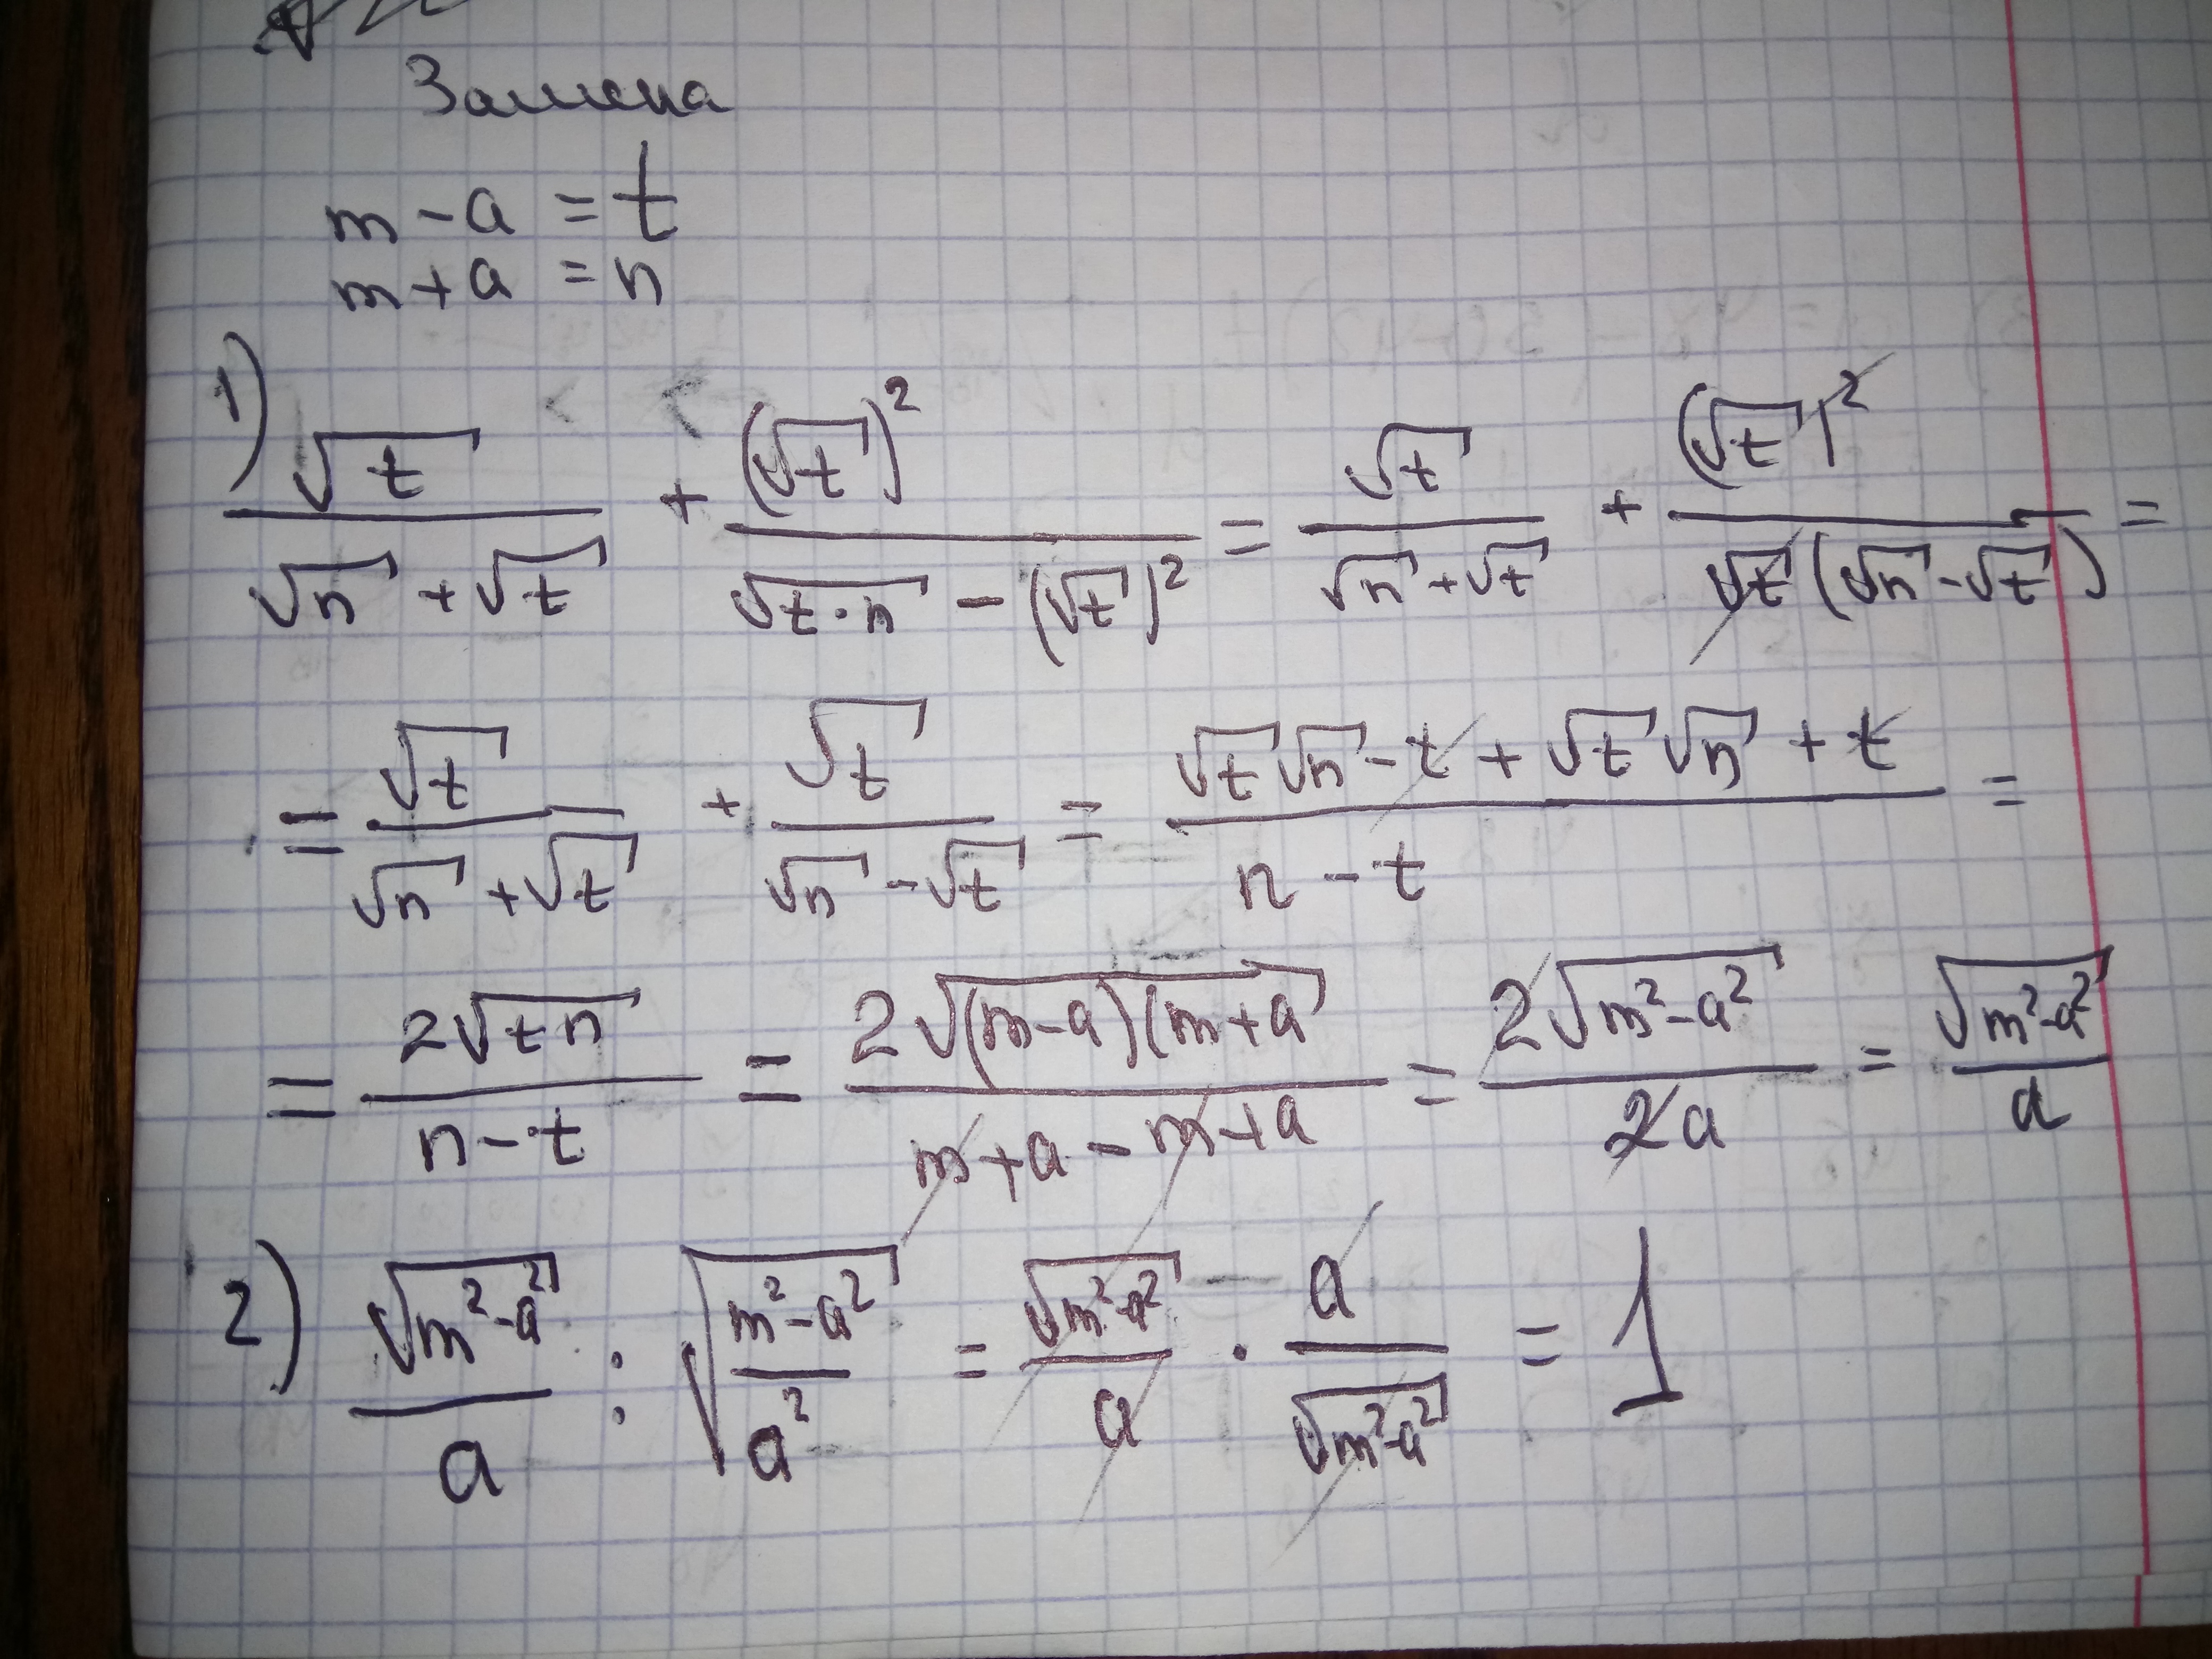 Замена
m - a = t
m + a = n
1) √t / (√n + √t) + (√t)² / (√(t·n) - (√t)²) = √t / (√n + √t) + (√t)² / (√t (√n - √t)) =
= √t / (√n + √t) + √t / (√n - √t) = (√t √n - t + √t √n + t) / (n - t) =
= 2√(tn) / (n - t) = 2√((m-a)(m+a) / (m + a - m + a) = 2√(m² - a²) / 2a = √(m² - a²) / a
2) √(m² - a²) / a : √((m² - a²) / a²) = √(m² - a²) / a · a / √(m² - a²) = 1